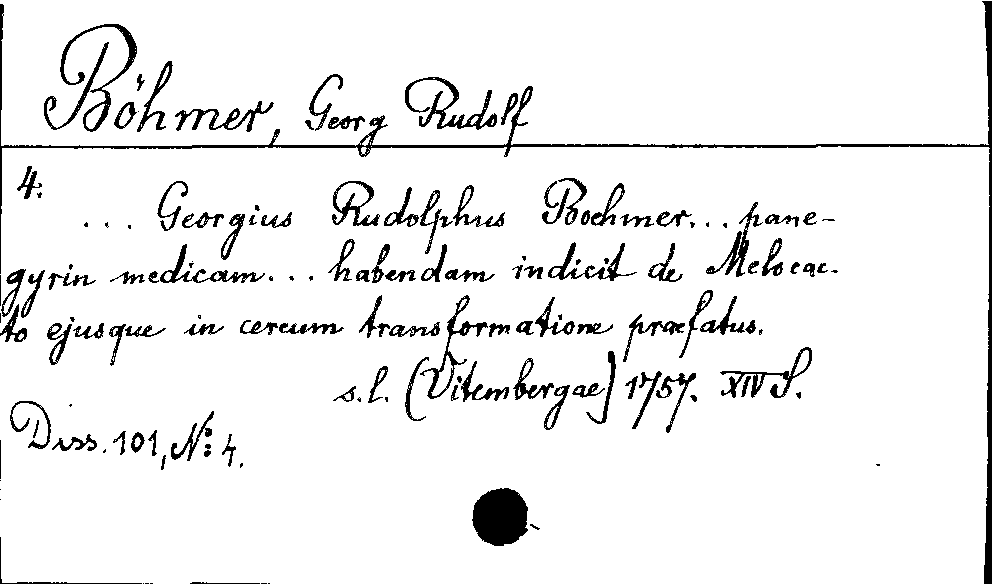 Böhmer, Georg Rudolf
4.
... Georgius Rudolphus Boehmer... pane-
gyrin medicam... habendam indicit de Melocac-
to ejusque in cereum transformatione praefatus.
s.l. (Vitembergae) 1757. XIV S.
Diss. 101, No: 4.